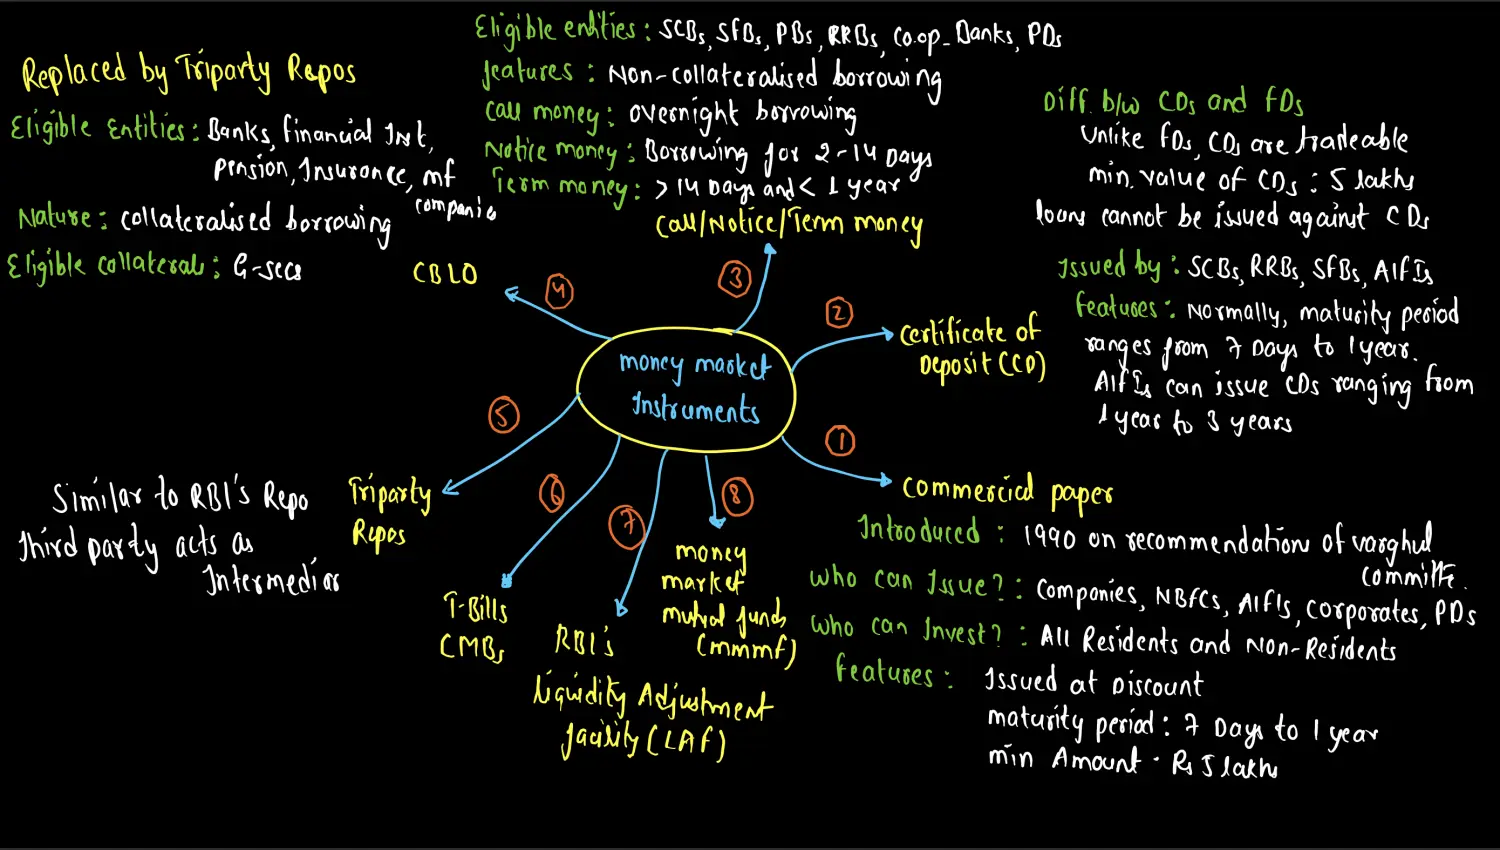 Money Market
Instruments
①
Commercial paper
Introduced : 1990 on recommendation of Varghul
Committe.
Who can Issue? : Companies, NBFCs, AIFIs, Corporates, PDs
Who can Invest? : All Residents and Non-Residents
Features : Issued at Discount
Maturity period : 7 Days to 1 year
Min Amount - Rs 5 lakhs
②
Certificate of
Deposit (CD)
Diff. b/w CDs and FDs
Unlike FDs, CDs are tradeable
min. value of CDs : 5 lakhs
loans cannot be issued against CDs
Issued by : SCBs, RRBs, SFBs, AIFIs
Features : Normally, maturity period
ranges from 7 Days to 1 year.
AIFIs can issue CDs ranging from
1 year to 3 years
③
Eligible entities : SCBs, SFBs, PBs, RRBs, Co.op-Banks, PDs
Features : Non-collateralised borrowing
Call money : overnight borrowing
Notice money : Borrowing for 2-14 Days
Term money : > 14 Days and < 1 year
Call/Notice/Term money
④
CBLO
Replaced by Triparty Repos
Eligible Entities : Banks, Financial Inst,
Pension, Insurance, MF
companies
Nature : collateralised borrowing
Eligible collaterals : G-secs
⑤
Triparty
Repos
Similar to RBI's Repo
Third party acts as
Intermediar
⑥
T-Bills
CMBs
⑦
RBI's
Liquidity Adjustment
Facility (LAF)
⑧
Money
Market
Mutual funds
(MMMF)